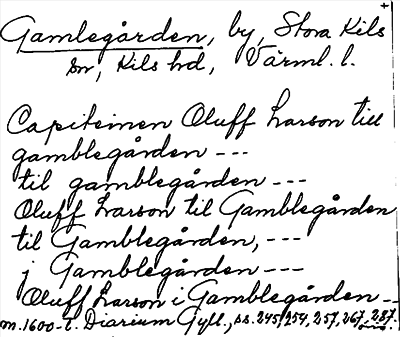 Gamlegården, by, Stora Kils
sn, Kils hd, Värml. l.
Capiteinen Oluff Larson till
gamblegården ---
til gamblegården ---
Oluff Larson til Gamblegården
til Gamblegården, ---
j Gamblegården ---
Oluff Larson i Gamblegården --
m. 1600-t. Diarium Gyll., ss. 245, 254, 257, 267, 287.